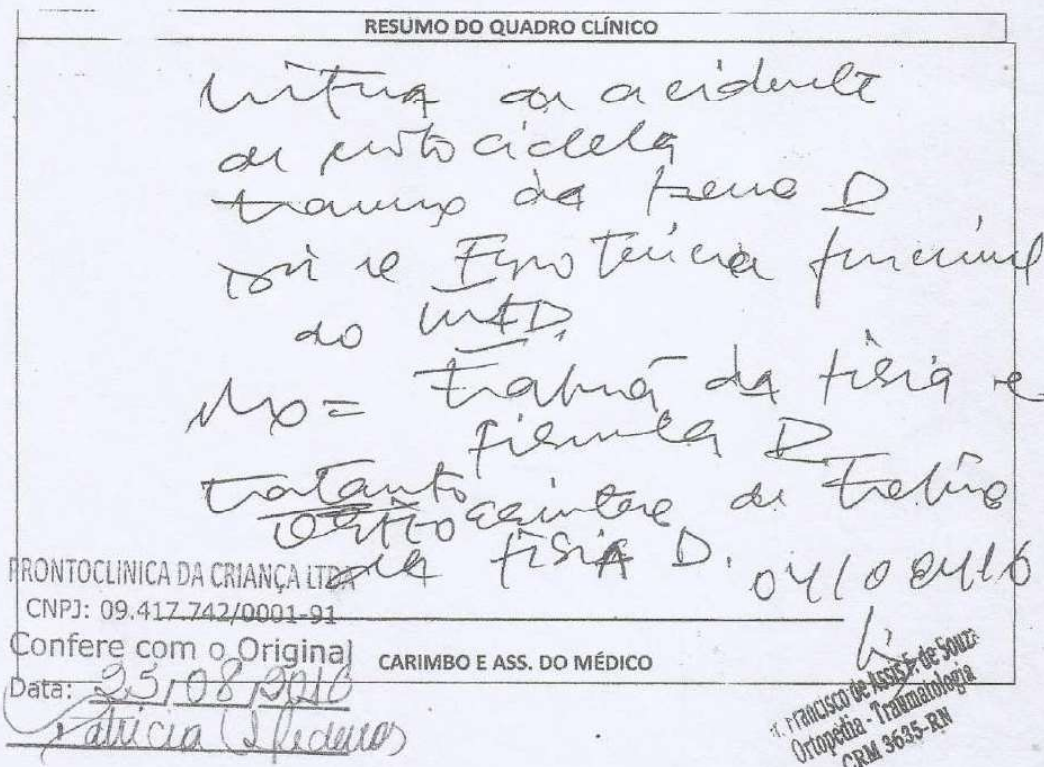 RESUMO DO QUADRO CLÍNICO
Vítima de acidente
de motocicleta
trauma da perna D
dor e Impotência funcional
do MID.
Rx = Fratura da tíbia e
fíbula D
tratamento
cirúrgico de Fratura
da tíbia D.
PRONTOCLINICA DA CRIANÇA LTDA
CNPJ: 09.417.742/0001-91
Confere com o Original
CARIMBO E ASS. DO MÉDICO
Data: 25/08/2016
Patricia Medeiros
Francisco de Assis F. de Souza
Ortopedia - Traumatologia
CRM 3635-RN